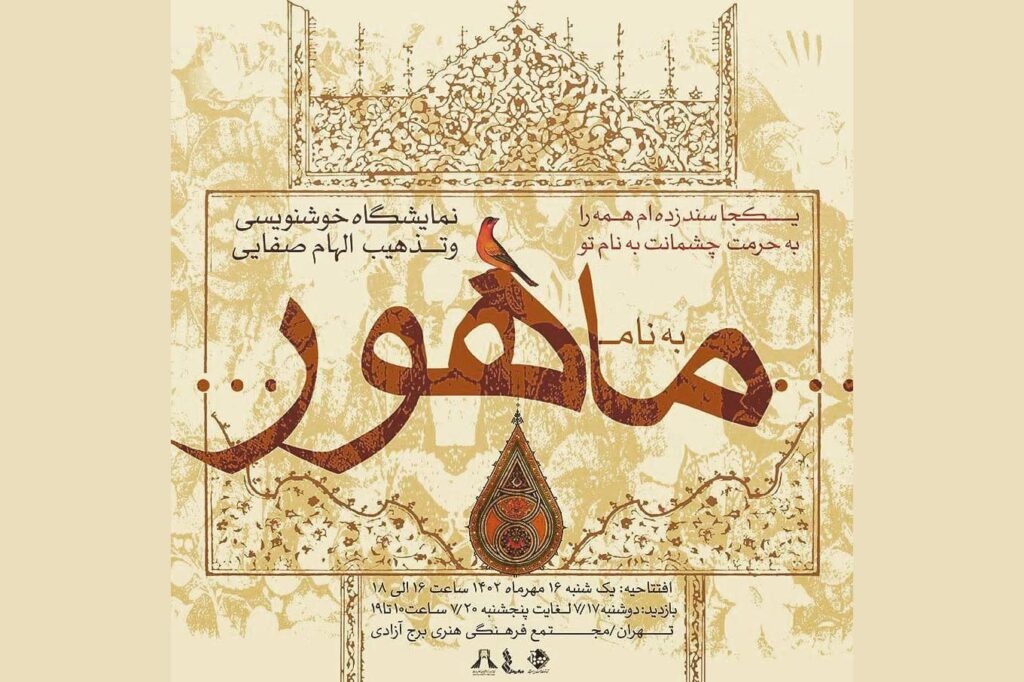 یکجا سند زده ام همه را
به حرمت چشمانت به نام تو
نمایشگاه خوشنویسی
وتذهیب الهام صفایی
به نام
ماهور
افتتاحیه: یک شنبه ۱۶ مهرماه ۱۴۰۲ ساعت ۱۶ الی ۱۸
بازدید: دوشنبه ۷/۱۷ لغایت پنجشنبه ۷/۲۰ ساعت ۱۰ تا ۱۹
تهران/مجتمع فرهنگی هنری برج آزادی